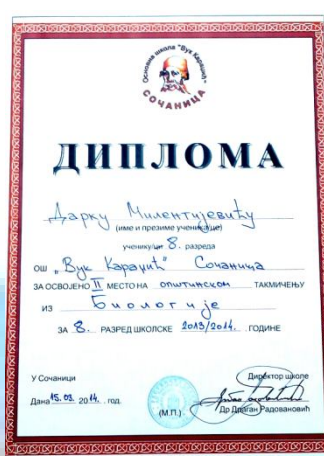 Основна школа "Вук Караџић"
СОЧАНИЦА
ДИПЛОМА
Дарку Милентијевићу
(име и презиме ученика/це)
ученику/це 8. разреда
ОШ „Вук Караџић" Сочаница
ЗА ОСВОЈЕНО II МЕСТО НА општинском ТАКМИЧЕЊУ
ИЗ Биологије
ЗА 8. РАЗРЕД ШКОЛСКЕ 2013/2014. ГОДИНЕ
У Сочаници
Директор школе
Дана 15.03. 2014. год.
(М.П.)
Др Драган Радовановић